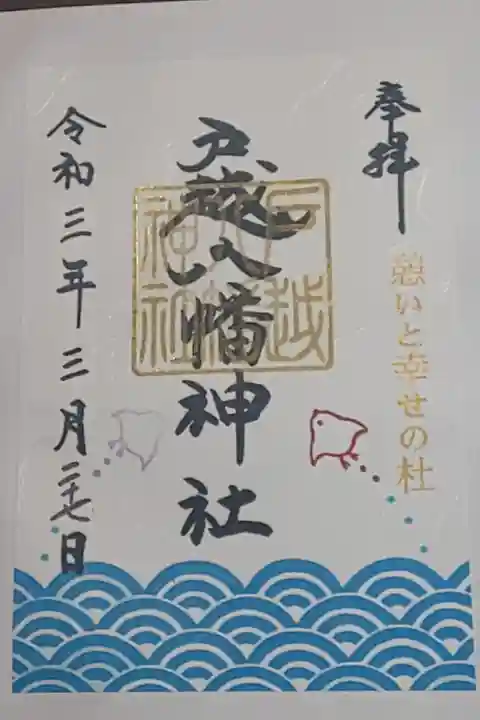 奉拝
憩いと幸せの杜
戸越八幡神社
戸越八幡神社
令和三年三月二十七日